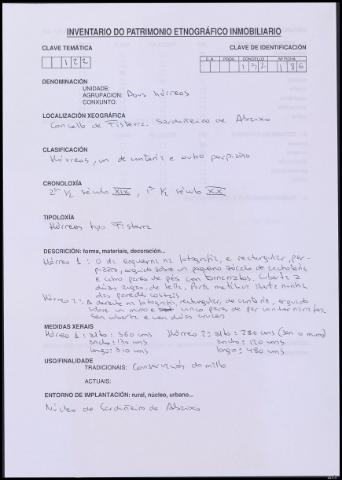 INVENTARIO DO PATRIMONIO ETNOGRÁFICO INMOBILIARIO
CLAVE TEMÁTICA
CLAVE DE IDENTIFICACIÓN
1 2 2
C.A. PROV. CONCELLO Nº FICHA
1 3 2 1 8 6
DENOMINACIÓN
UNIDADE:
AGRUPACION: Dous hórreos
CONXUNTO:
LOCALIZACIÓN XEOGRÁFICA
Concello de Fisterra. Sardiñeiro de Abaixo
CLASIFICACIÓN
Hórreos, un de cantaría e outro perpiaño
CRONOLOXÍA
2ª 1/2 século XIX, 1ª 1/2 século XX
TIPOLOXÍA
Hórreos tipo Fisterra
DESCRICIÓN: forma, materiais, decoración...
Hórreo 1: O da esquerda na fotografía, e rectangular, per-
piaño, erguido sobre un pequeno zócalo de cachotería
e catro pares de pés con tornarratos. Cuberta a
dúas augas, de tella. Porta metálica
das paredes costais
Hórreo 2: A dereita na fotografía, rectangular, de cantaría, erguido
sobre un muro e único pare de pés con tornarratos.
MEDIDAS XERAIS
Hórreo 1: alto: 360 cms Hórreo 2: alto: 280 cms (sen o muro)
ancho: 170 cms ancho: 120 cms
longo: 310 cms longo: 480 cms
USO/FINALIDADE
TRADICIONAL: Conservación do millo
ACTUAL:
ENTORNO DE IMPLANTACIÓN: rural, núcleo, urbano...
Núcleo de Sardiñeiro de Abaixo